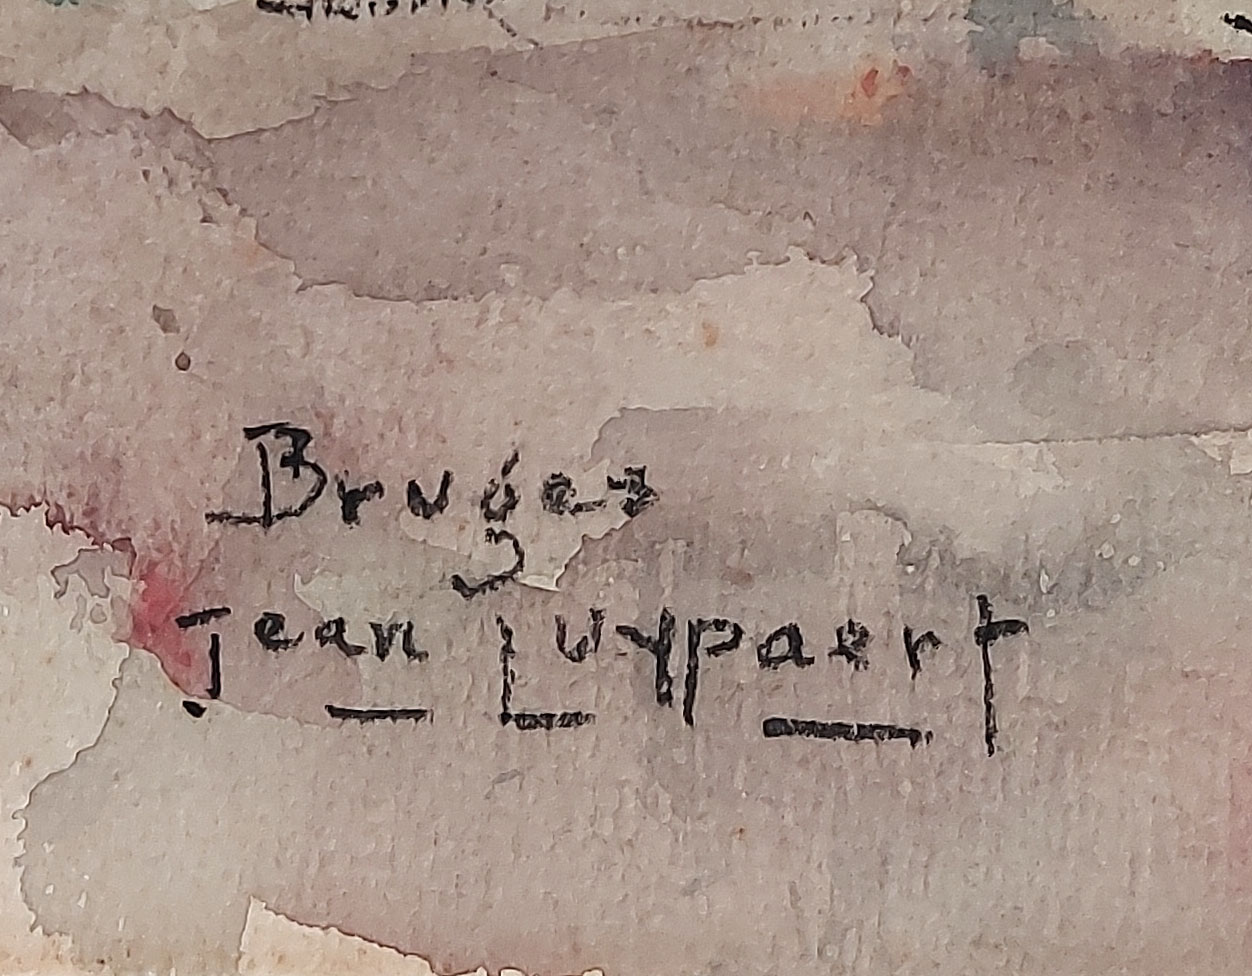 Bruges
Jean Luypaert